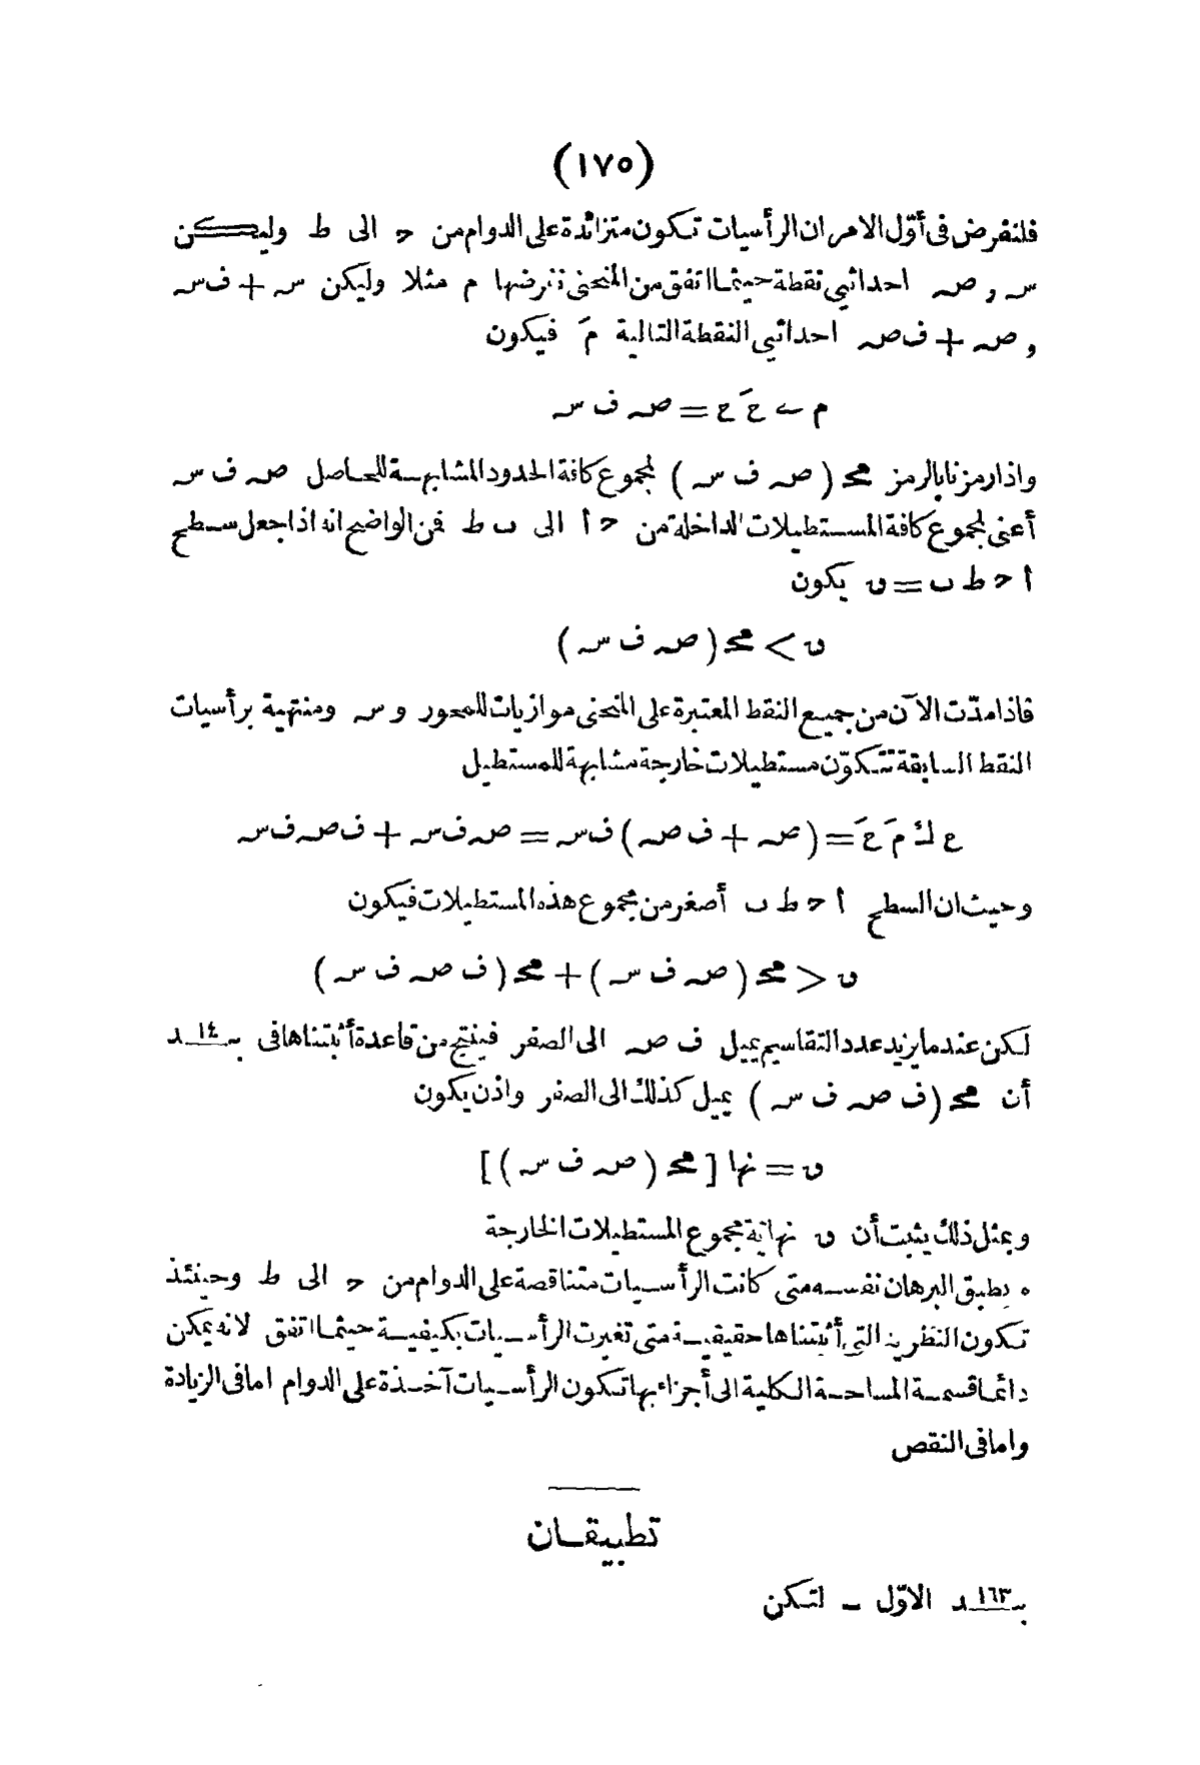 (١٧٥)
فلنفرض فى أوّل الامر ان الرأسيات تكون متزائدة على الدوام من ح الى ط وليكن
س و ص احداثيى نقطة حيثما اتفق من المنحنى نفرضها م مثلا وليكن س + ف س
و ص + ف ص احداثيى النقطة التالية مَ فيكون
م ے عَ ع = ص ف س
واذا رمزنا بالرمز مج (ص ف س) لمجموع كافة الحدود المشابهة للحاصل ص ف س
أعنى لمجموع كافة المستطيلات الداخلة من ح ا الى ب ط فمن الواضح انه اذا جعل سطح
ا ح ط ب = ں يكون
ں > مج (ص ف س)
فاذا مدّت الآن من جميع النقط المعتبرة على المنحنى موازيات للمحور و س ومنتهية برأسيات
النقط السابقة تتكوّن مستطيلات خارجة مشابهة للمستطيل
ع ك مَ عَ = (ص + ف ص) ف س = ص ف س + ف ص ف س
وحيث ان السطح ا ح ط ب أصغر من مجموع هذه المستطيلات فيكون
ں < مج (ص ف س) + مج (ف ص ف س)
لكن عندما يزيد عدد التقاسيم يميل ف ص الى الصفر فينتج من قاعدة أثبتناها فى بـ١٤ـد
أن مج (ف ص ف س) يميل كذلك الى الصفر واذن يكون
ں = نها [مج (ص ف س)]
وبمثل ذلك يثبت أن ں نهاية مجموع المستطيلات الخارجة
ويطبق البرهان نفسه متى كانت الرأسيات متناقصة على الدوام من ح الى ط وحينئذ
تكون النظرية التى أثبتناها حقيقية متى تغيرت الرأسيات بكيفية حيثما اتفق لانه يمكن
دائما قسمة المساحة الكلية الى أجزاء بها تكون الرأسيات آخذة على الدوام اما فى الزيادة
واما فى النقص
تطبيقان
بـ١٦٣ـد الاوّل ـ لتكن